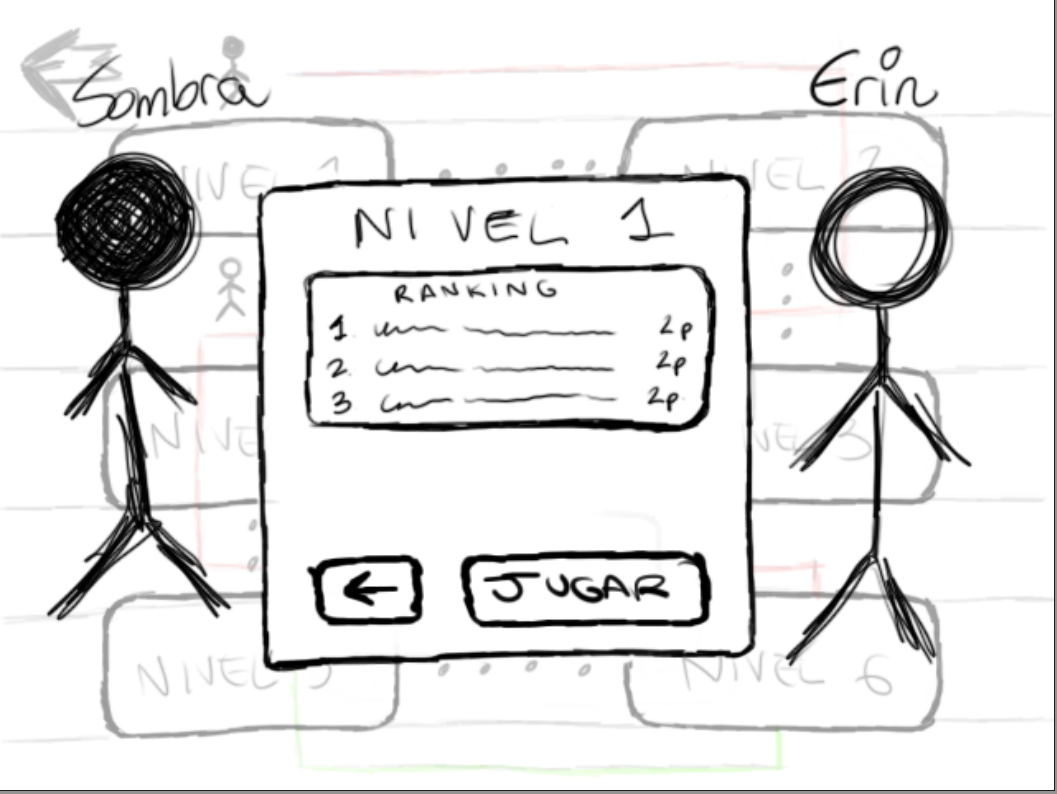 Sombra
Erin
NIVEL 1
NIVEL 2
NIVEL 1
RANKING
1. 2p
2. 2p
3 2p
NIVEL
NIVEL 3
← JUGAR
NIVEL 5
NIVEL 6